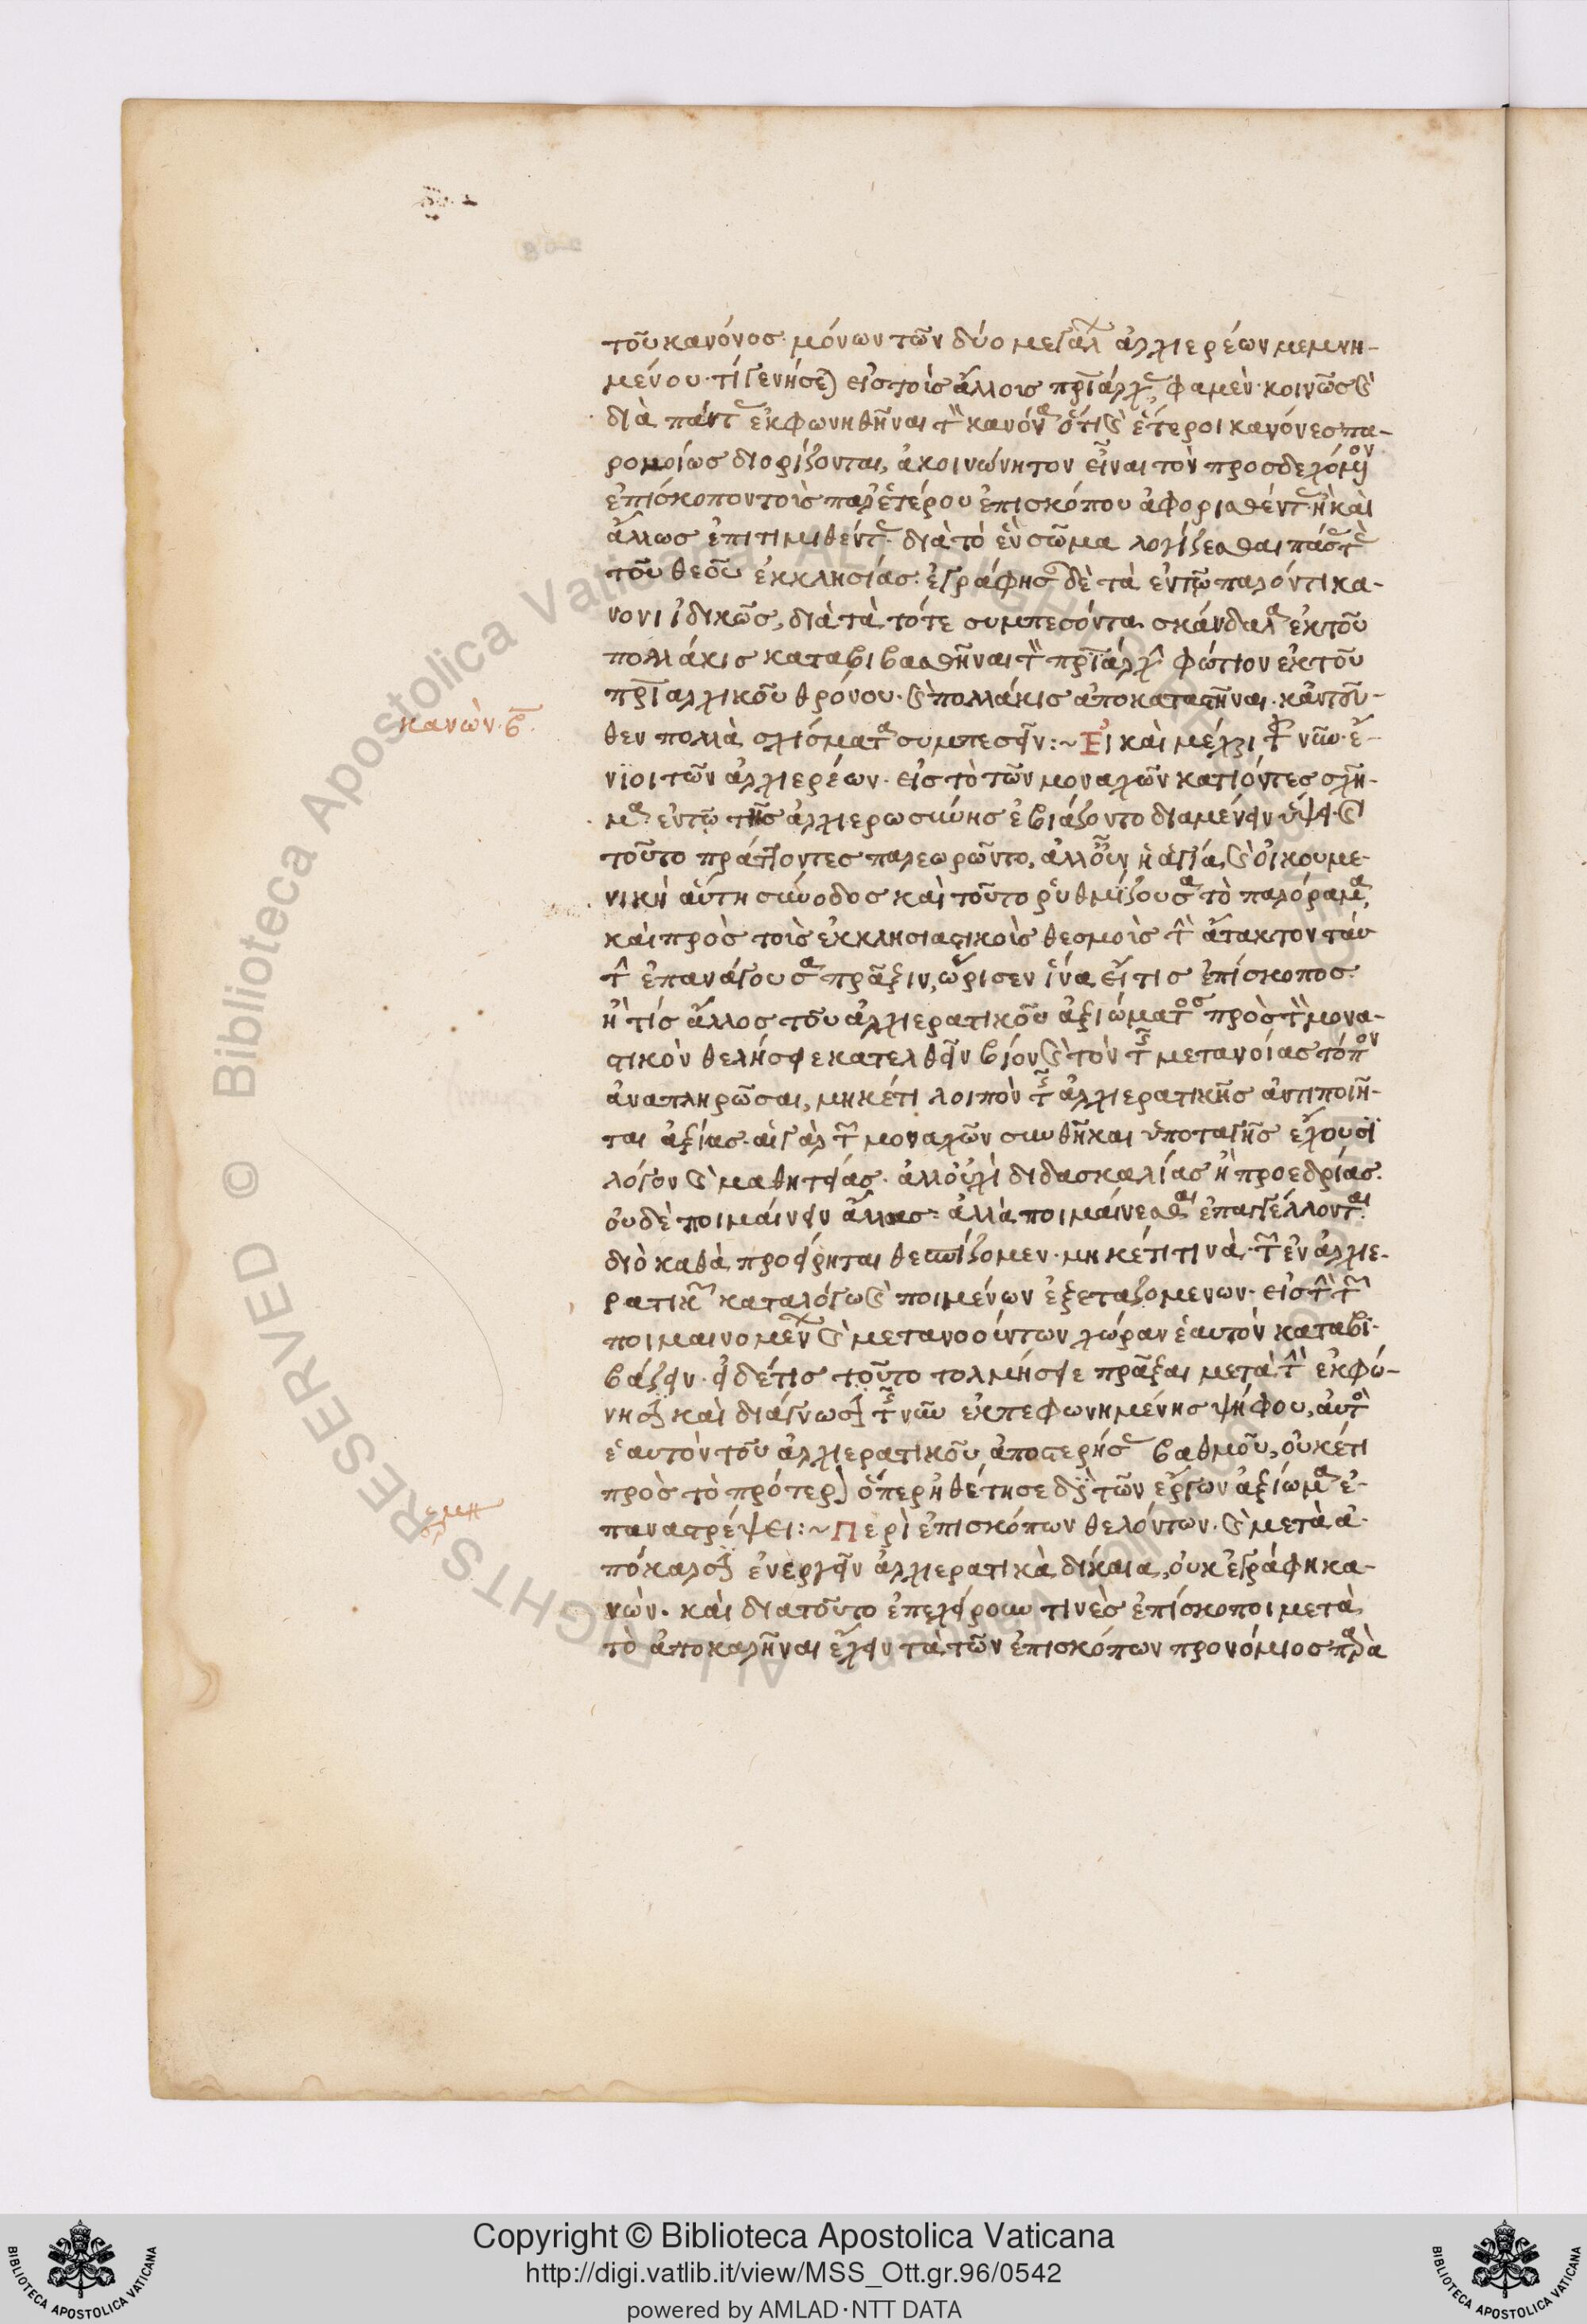 τοῦ κανόνος μόνων τῶν δύο μεγάλ ἀρχιερέων μεμνη-
μένου· τί γενήσε εἰς τοῖς ἄλλοις πρϊάρχ φαμὲν· κοινῶς καὶ
διὰ πάντ ἐκφωνηθῆναι τὸν κανόνα ὅτι καὶ ἕτεροι κανόνες πα-
ρομοίως διορίζονται, ἀκοινώνητον εἶναι τὸν προσδεχόμενον
ἐπίσκοπον τοῖς παρ' ἑτέρου ἐπισκόπου ἀφορισθέντ ἢ καὶ
ἄλλως ἐπιτιμιθέντ· διὰ τὸ ἓν σῶμα λογίζεσθαι πάσ τὰς
τοῦ θεοῦ ἐκκλησίας· ἐγράφησ δὲ τὰ ἐν τῷ παρόντι κα-
νονι ἰδικῶς, διὰ τὰ τότε συμπεσόντα σκάνδαλα ἐκ τοῦ
πολλάκις καταβιβασθῆναι τὸν πρϊάρχ φώτιον ἐκ τοῦ
πρϊαρχικοῦ θρόνου· καὶ πολλάκις ἀποκαταστῆναι· κἀντεῦ-
κανὼν· β
θεν πολλὰ σχίσματα συμπεσεῖν:~ Εἰ καὶ μέχρι τοῦ νῦν· ἔ-
νϊοι τῶν ἀρχιερέων· εἰς τὸ τῶν μοναχῶν κατιόντες σχῆ-
μα ἐν τῷ τῆς ἀρχιερωσύνης ἐβιάζοντο διαμένειν ὕψει· καὶ
τοῦτο πράττοντες παρεωρῶντο, ἀλλ' οὖν ἡ ἁγία, καὶ οἰκουμε-
νικὴ αὕτη σύνοδος καὶ τοῦτο ῥυθμίζουσα τὸ παρόραμα,
καὶ πρὸς τοῖς ἐκκλησιαστικοῖς θεσμοῖς τὴν ἄτακτον ταύ
τὴν ἐπανάγουσα πρᾶξιν, ὥρισεν ἵνα εἴ τις ἐπίσκοπος
ἤ τίς ἄλλος τοῦ ἀρχιερατικοῦ ἀξιώματος πρὸς τὸν μονα-
στικὸν θελήσειε κατελθεῖν βίον καὶ τὸν τῆς μετανοίας τόπον
ἀναπληρῶσαι, μηκέτι λοιπὸν τῆς ἀρχιερατικῆς ἀντιποιῆ-
ται ἀξίας· αἱ γὰρ τῶν μοναχῶν συνθῆκαι ὑποταγῆς ἔχουσϊ
λόγον καὶ μαθητείας· ἀλλ' οὐχὶ διδασκαλίας ἢ προεδρίας·
οὐδὲ ποιμαίνειν ἄλλας· ἀλλὰ ποιμαίνεσθαι ἐπαγγέλλονται·
διὸ καθὰ προείρηται θεσπίζομεν· μηκέτι τινὰ· τῶν ἐν ἀρχιε-
ρατικῶ καταλόγω καὶ ποιμένων ἐξεταζομενων· εἰς τὴν τῶν
ποιμαινομένων καὶ μετανοούντων χώραν ἑαυτὸν καταβι-
βάζειν· εἰ δέ τις τοῦτο τολμήσειε πρᾶξαι μετὰ τὴν ἐκφώ-
νησιν καὶ διάγνωσιν τῆς νῦν ἐκπεφωνημένης ψήφου, αὐτὸς
ἑαυτὸν τοῦ ἀρχιερατικοῦ ἀποστερήσ βαθμοῦ, οὐκέτι
πρὸς τὸ πρότερον ὅπερ ἠθέτησε διὰ τῶν ἔργων ἀξίωμα ἐ-
ἑρμη
παναστρέψει:~ Περὶ ἐπισκόπων θελόντων· καὶ μετὰ ἀ-
πόκαρσιν ἐνεργεῖν ἀρχιερατικὰ δίκαια, οὐκ ἐγράφη κα-
νὼν· καὶ διατοῦτο ἐπεχείρουν τινὲς ἐπίσκοποι μετὰ
τὸ ἀποκαρῆναι ἔχειν τὰ τῶν ἐπισκόπων προνόμιος παρὰ
Copyright © Biblioteca Apostolica Vaticana
http://digi.vatlib.it/view/MSS_Ott.gr.96/0542
powered by AMLAD·NTT DATA